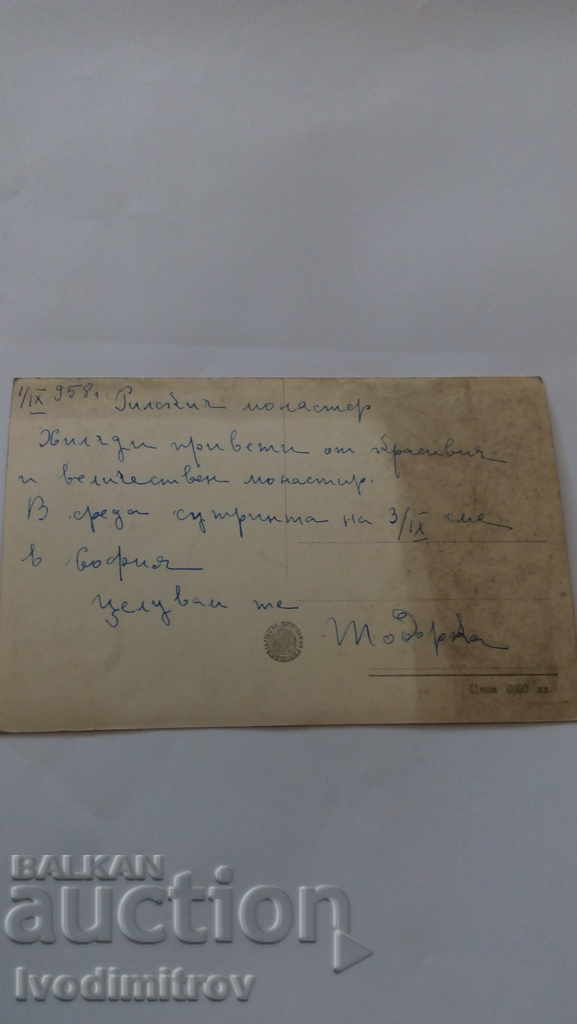 1/IX 958 г. Рилския монастер
Хиляди привети от красивия
и величествен монастир.
В среда сутринта на 3/IX сме
в София
Целувам те
Тодорка
Цена 0·80 лв.
BALKAN
auction
Ivodimitrov